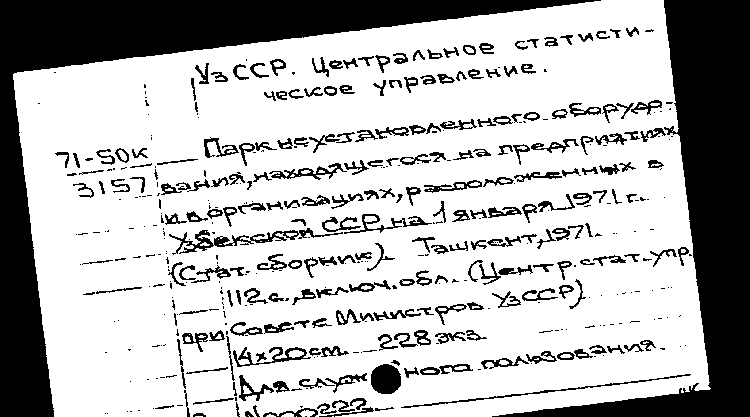 УзССР. Центральное статисти-
ческое управление.
71-50к
3157
Парк неустановленного оборудо-
вания, находящегося на предприятиях
и в организациях, расположенных в
Узбекской ССР, на 1 января 1971 г.
(Стат. сборник). Ташкент, 1971.
112 с., включ. обл. (Центр. стат. упр.
при Совете Министров УзССР)
14x20см. 228 экз.
Для служ ного пользования.
N000222